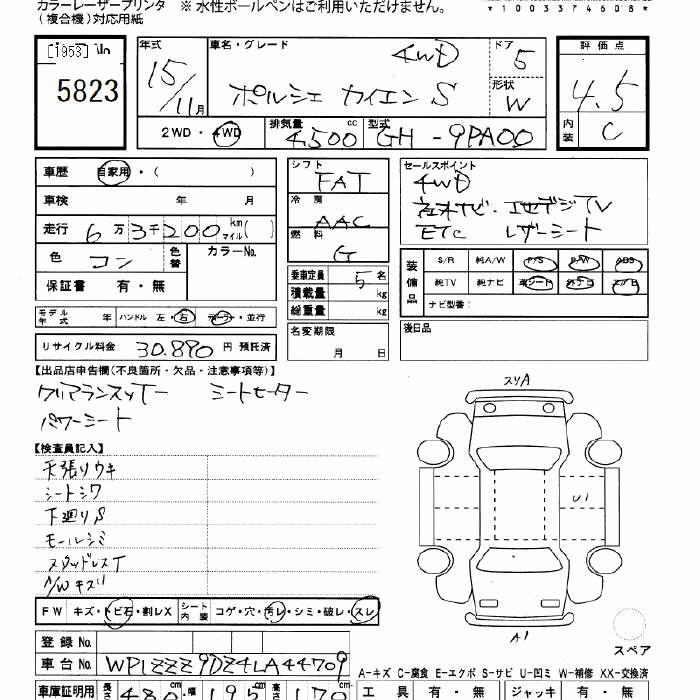 カラーレーザープリンタ ※ 水性ボールペンはご利用いただけません。
(複合機)対応用紙
*1003374608*
[1953]
5823
年式 15/11月
車名・グレード 4WD
ポルシェ カイエン S
ドア 5
形状 W
評価点 4.5
内装 C
2WD・4WD 排気量 4,500 cc 型式 GH-9PA00
車歴 自家用・( )
車検 年 月
走行 6万3千200 km マイル( )
色 コン 色替 カラーNo.
保証書 有・無
シフト FAT
冷房 AAC
燃料 G
乗車定員 5名
積載量 kg
総重量 kg
セールスポイント
4WD
社外ナビ・フルセグデジTV
ETC レザーシート
装備品 S/R 純A/W P/S P/W ABS
純TV 純ナビ 革シート 外ナビ エアB
ナビ型番:
モデル年式 年 ハンドル 左・右 ディーラー・並行
リサイクル料金 30,890 円 預託済
名変期限 月 日
後日品
【出品店申告欄(不良箇所・欠品・注意事項等)】
シートヒーター
パワーシート
【検査員記入】
天張りウキ
シートシワ
下廻りS
モールシミ
スタッドレスT
A/Wキズ
スリA
U1
A1
スペア
FW キズ・トビ石・割レX シート内装 コゲ・穴・汚レ・シミ・破レ・スレ
登録No.
車台No. WP1ZZZ9PZ4LA44709
A-キズ C-腐食 E-エクボ S-サビ U-凹ミ W-補修 XX-交換済
車庫証明用 長さ 480cm 幅 195cm 高さ 170cm
工具 有・無 ジャッキ 有・無